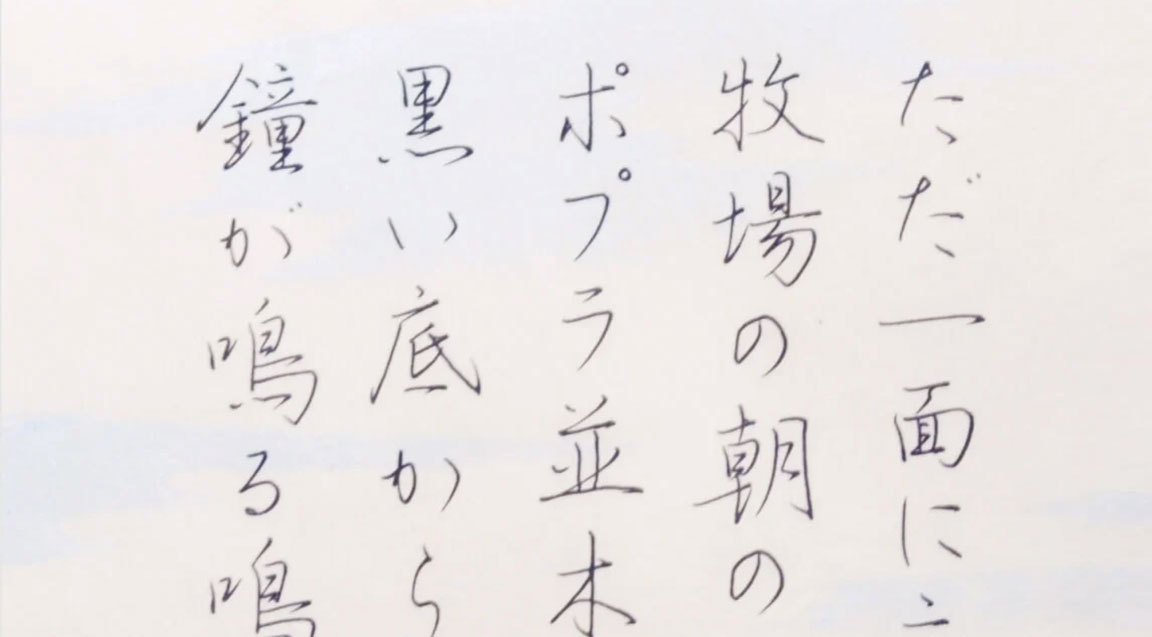 ただ一面に
牧場の朝の
ポプラ並木
黒い底から
鐘が鳴る鳴